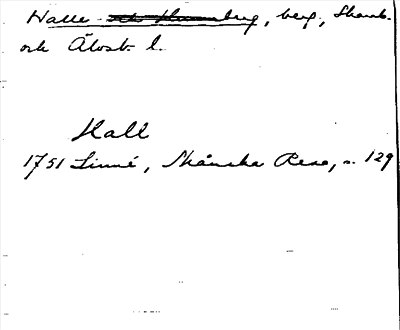 Halle- och Hunneberg, berg, Skarab.
och Älvsb. l.
Hall
1751 Linné, Skånska Resa, s. 129